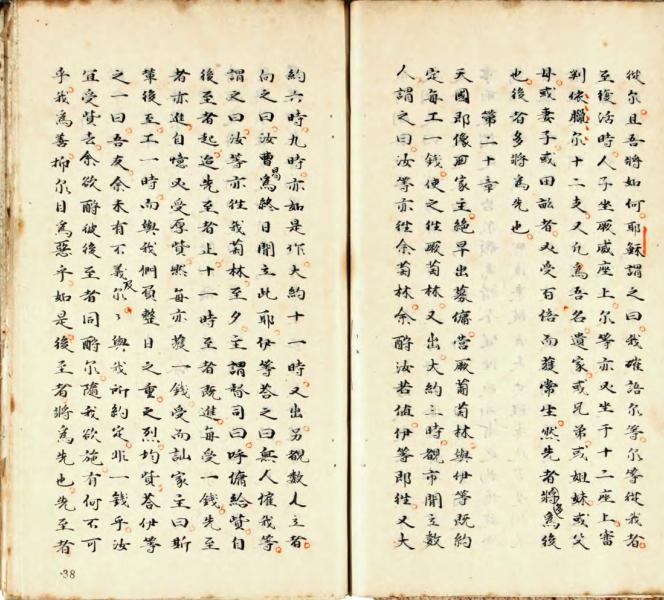 從尔且吾將如何耶穌謂之曰我確語尔等尔等從我者
至復活時人子坐厥威座上尔等亦又坐于十二座上審
判依臘尔十二支又凡爲吾名遺家或兄弟或姐妹或父
母或妻子或田畝者又受百倍而獲常生然先者將爲後
也後者多將爲先也
第二十章
天國即像一家主絶早出募傭營厥葡萄林與伊等既約
定每工一錢使之徃厥萄林又出大約三時覩市閒立數
人謂之曰汝等亦徃余萄林余酧汝若値伊等即徃又大
約六時九時亦如是作大約十一時又出另覩數人立者
向之曰汝曹曷爲終日閒立此耶伊等荅之曰無人催我等
謂之曰汝等亦徃我萄林至夕主謂督司曰呼傭給賞自
後至者起迄先至者止十一時至者既進每受一錢先至
者亦進自憶又受厚賞然每亦獲一錢受而訕家主曰斯
輩後至工一時而與我們負整日之重之烈均賞荅伊等
之一曰吾友余未有不義及尔尔與我所約定非一錢乎汝
宜受賞去余欲酧彼後至者同酧尔隨我欲施有何不可
乎我爲善抑尔目爲惡乎如是後至者將爲先也先至者
38